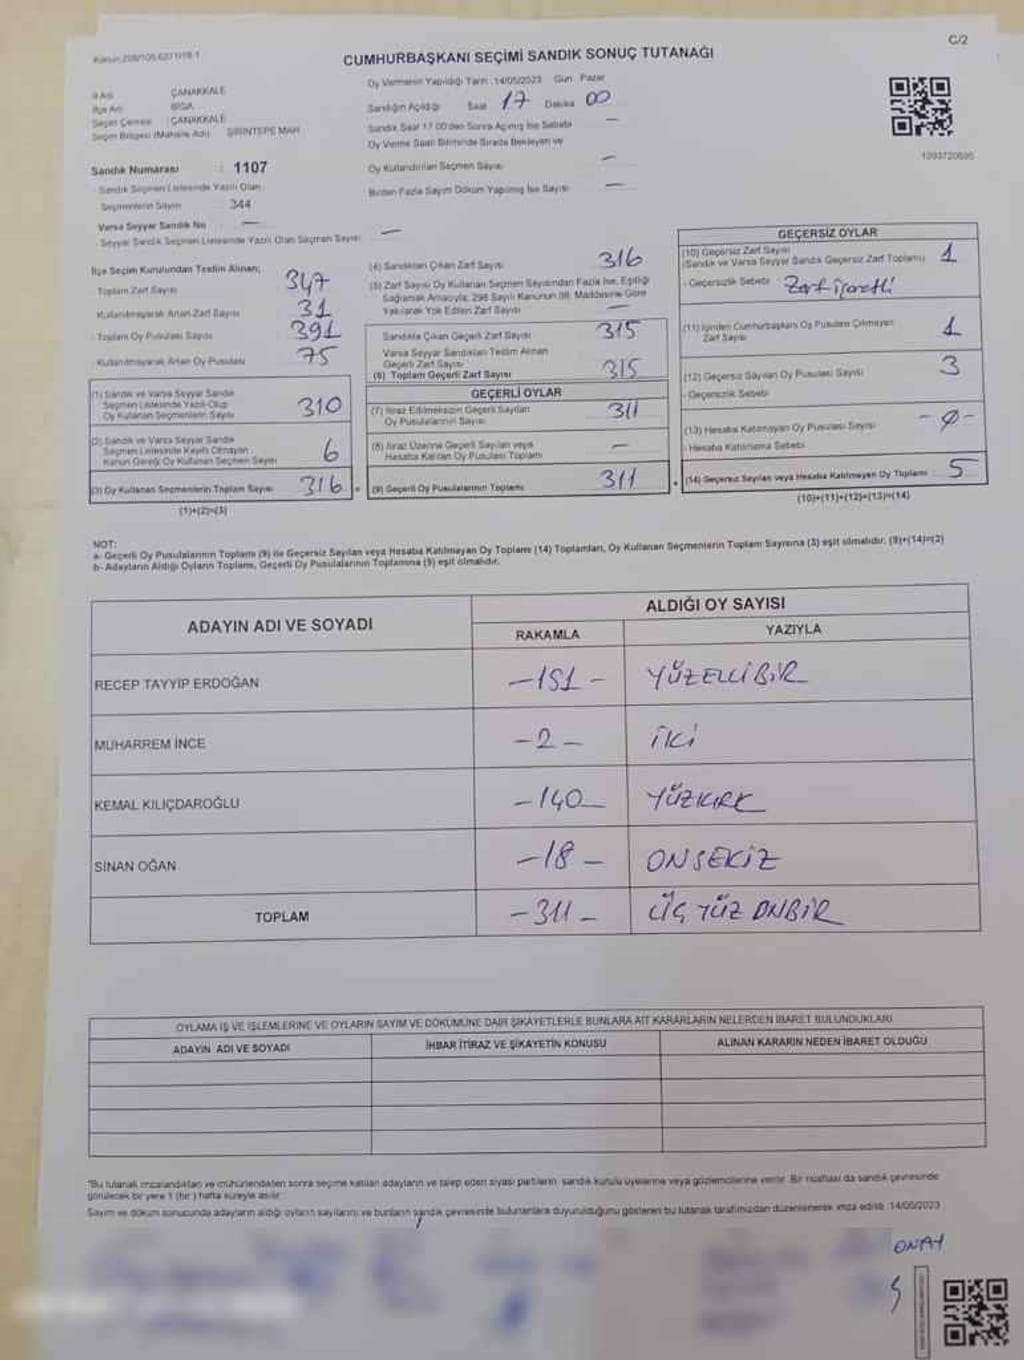 C/2
CUMHURBAŞKANI SEÇİMİ SANDIK SONUÇ TUTANAĞI
Oy Vermenin Yapıldığı Tarih :14/05/2023 Gün: Pazar
İl Adı ÇANAKKALE
İlçe Adı BİGA
Seçim Çevresi :ÇANAKKALE
Seçim Bölgesi (Mahalle Adı) ŞİRİNTEPE MAH
Sandığın Açıldığı Saat 17 Dakika 00
Sandık Saat 17.00'den Sonra Açılmış İse Sebebi —
Oy Verme Saati Bitiminde Sırada Bekleyen ve
Oy Kullandırılan Seçmen Sayısı —
Birden Fazla Sayım Döküm Yapılmış İse Sayısı —
Sandık Numarası : 1107
Sandık Seçmen Listesinde Yazılı Olan
Seçmenlerin Sayısı : 344
Varsa Seyyar Sandık No : —
Seyyar Sandık Seçmen Listesinde Yazılı Olan Seçmen Sayısı —
İlçe Seçim Kurulundan Teslim Alınan;
- Toplam Zarf Sayısı 347
- Kullanılmayarak Artan Zarf Sayısı 31
- Toplam Oy Pusulası Sayısı 391
- Kullanılmayarak Artan Oy Pusulası 75
(1) Sandık ve Varsa Seyyar Sandık
Seçmen Listesinde Yazılı Olup
Oy Kullanan Seçmenlerin Sayısı 310
(2) Sandık ve Varsa Seyyar Sandık
Seçmen Listesinde Kayıtlı Olmayan
Kanun Gereği Oy Kullanan Seçmen Sayısı 6
(3) Oy Kullanan Seçmenlerin Toplam Sayısı 316
(1)+(2)=(3)
(4) Sandıktan Çıkan Zarf Sayısı 316
(5) Zarf Sayısı Oy Kullanan Seçmen Sayısından Fazla İse, Eşitliği
Sağlamak Amacıyla, 298 Sayılı Kanunun 98. Maddesine Göre
Yakılarak Yok Edilen Zarf Sayısı —
Sandıkta Çıkan Geçerli Zarf Sayısı 315
Varsa Seyyar Sandıktan Teslim Alınan
Geçerli Zarf Sayısı
(6) Toplam Geçerli Zarf Sayısı 315
GEÇERLİ OYLAR
(7) İtiraz Edilmeksizin Geçerli Sayılan
Oy Pusulalarının Sayısı 311
(8) İtiraz Üzerine Geçerli Sayılan veya
Hesaba Katılan Oy Pusulası Toplamı —
(9) Geçerli Oy Pusulalarının Toplamı 311
GEÇERSİZ OYLAR
(10) Geçersiz Zarf Sayısı
(Sandık ve Varsa Seyyar Sandık Geçersiz Zarf Toplamı) 1
- Geçersizlik Sebebi Zarf işaretli
(11) İçinden Cumhurbaşkanı Oy Pusulası Çıkmayan
Zarf Sayısı 1
(12) Geçersiz Sayılan Oy Pusulası Sayısı 3
- Geçersizlik Sebebi
(13) Hesaba Katılmayan Oy Pusulası Sayısı -0-
- Hesaba Katılmama Sebebi
(14) Geçersiz Sayılan veya Hesaba Katılmayan Oy Toplamı 5
(10)+(11)+(12)+(13)=(14)
NOT:
a- Geçerli Oy Pusulalarının Toplamı (9) ile Geçersiz Sayılan veya Hesaba Katılmayan Oy Toplamı (14) Toplamları, Oy Kullanan Seçmenlerin Toplam Sayısına (3) eşit olmalıdır. (9)+(14)=(3)
b- Adayların Aldığı Oyların Toplamı, Geçerli Oy Pusulalarının Toplamına (9) eşit olmalıdır.
ADAYIN ADI VE SOYADI ALDIĞI OY SAYISI
RAKAMLA YAZIYLA
RECEP TAYYİP ERDOĞAN -151- YÜZELLİBİR
MUHARREM İNCE -2- İKİ
KEMAL KILIÇDAROĞLU -140- YÜZKIRK
SİNAN OĞAN -18- ONSEKİZ
TOPLAM -311- ÜÇ YÜZ ONBİR
OYLAMA İŞ VE İŞLEMLERİNE VE OYLARIN SAYIM VE DÖKÜMÜNE DAİR ŞİKAYETLERLE BUNLARA AİT KARARLARIN NELERDEN İBARET BULUNDUKLARI
ADAYIN ADI VE SOYADI İHBAR İTİRAZ VE ŞİKAYETİN KONUSU ALINAN KARARIN NEDEN İBARET OLDUĞU
*Bu tutanak imzalandıktan ve mühürlendikten sonra seçime katılan adayların ve talep eden siyasi partilerin sandık kurulu üyelerine veya gözlemcilerine verilir. Bir nüshası da sandık çevresinde
görülecek bir yere 1 (bir) hafta süreyle asılır.
Sayım ve döküm sonucunda adayların aldığı oyların sayılarını ve bunların sandık çevresinde bulunanlara duyurulduğunu gösteren bu tutanak tarafımızdan düzenlenerek imza edildi. 14/05/2023
ONAY